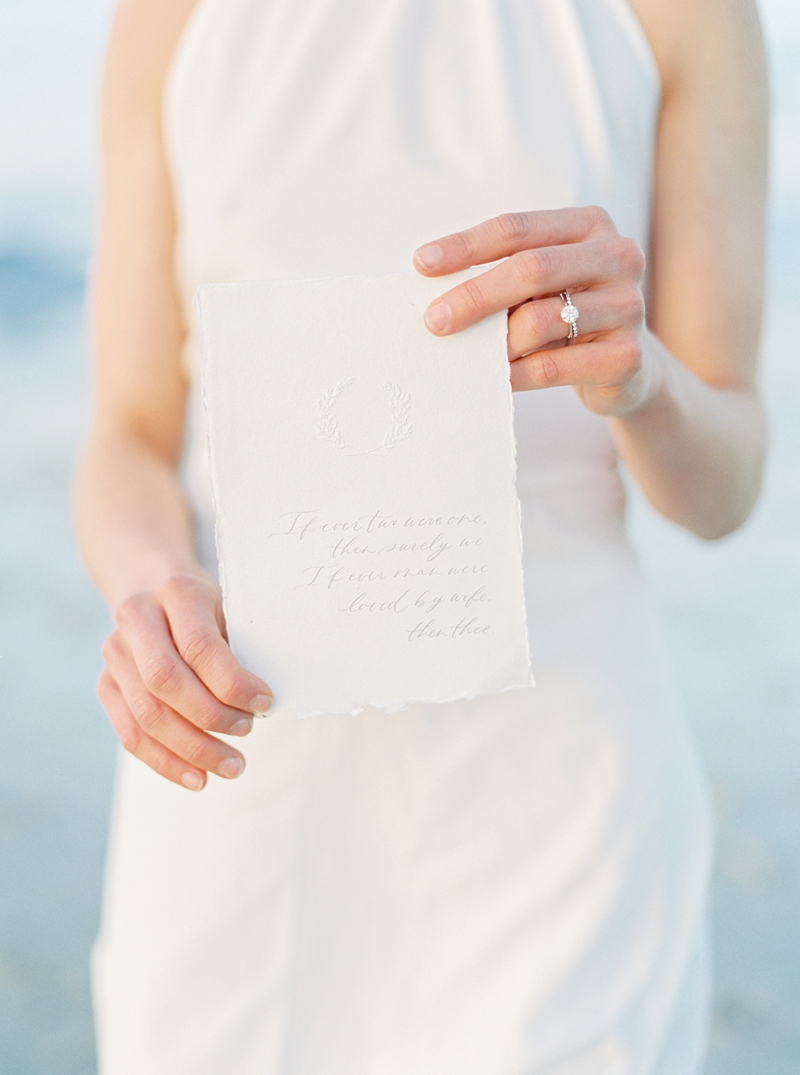 If ever two were one,
then surely we
If ever man were
loved by wife,
then thee